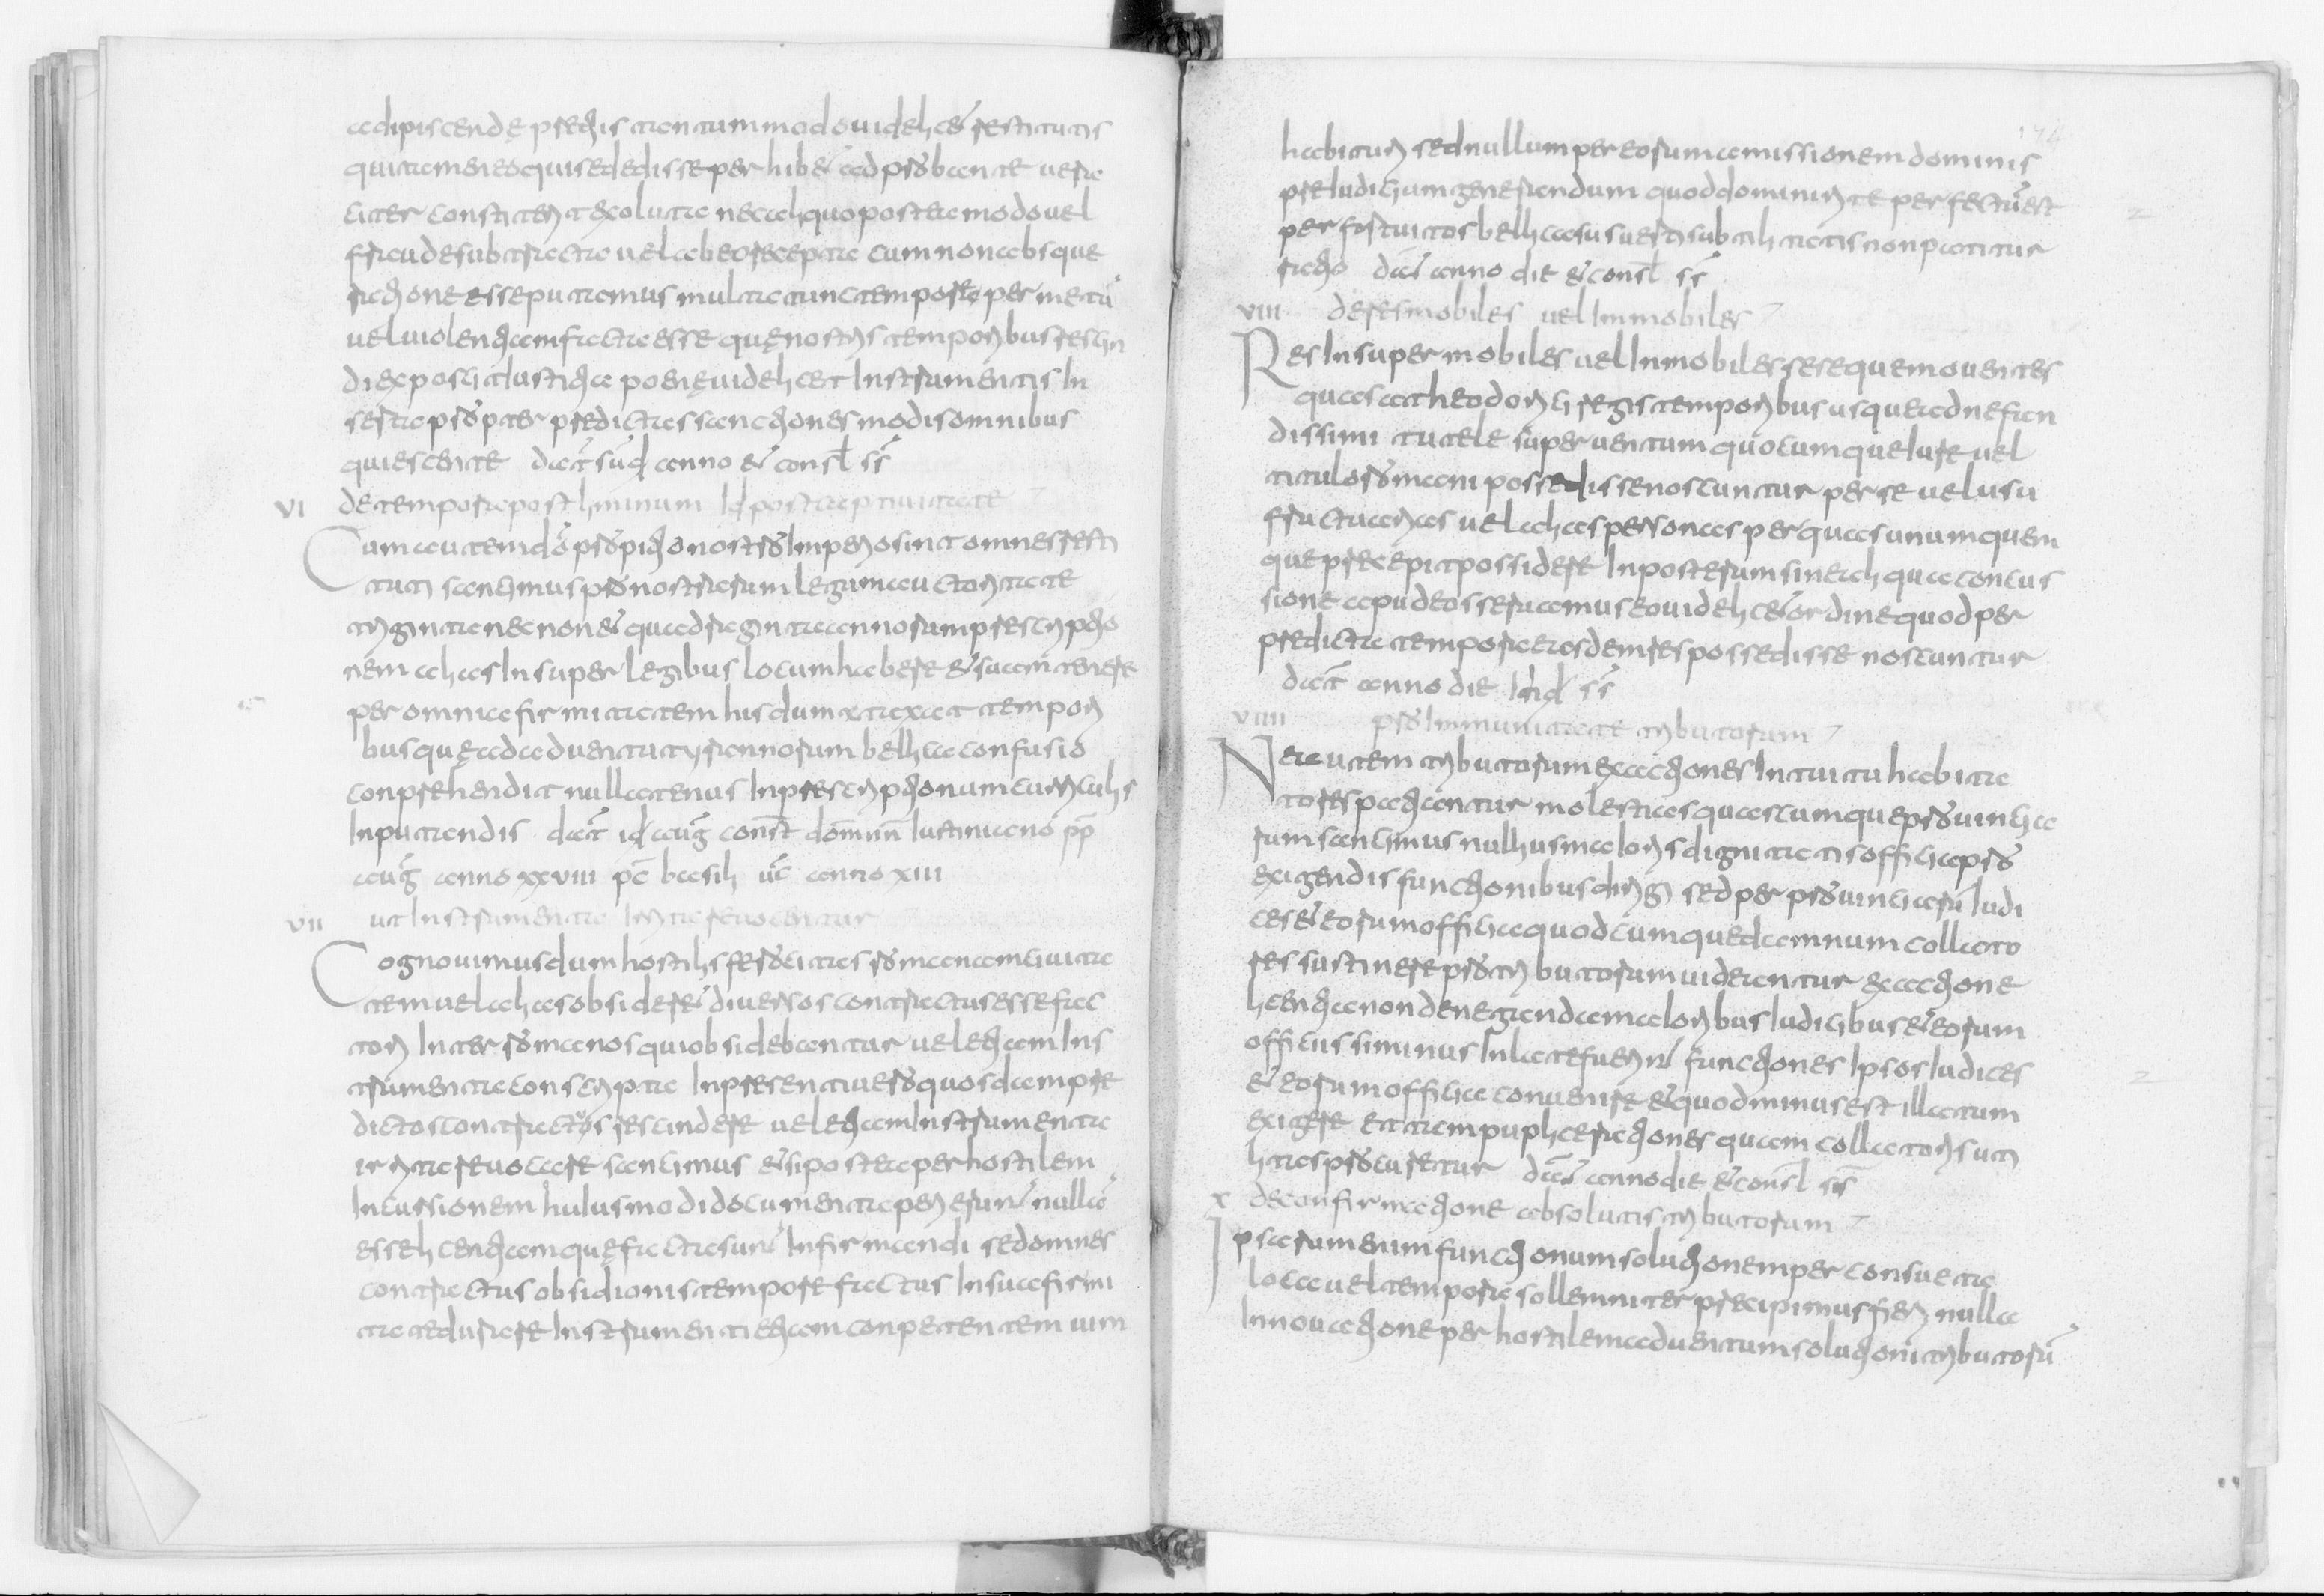 adipiscende pretiis tantummodo uidelicet restitutis
quitemereoquisededisse perhibet adprobante uera
citer constiterit exoluta necaliquo postea modo uel
fraude subtracta uel ab eo recepta cum non absque
ratione esse putamus multa tunc tempore per metū
uel uiolentiam facta esse quę nostris temporibus rescin
di exposcit iustitiae poenę uidelicet instrumentis in
serta propter predictas sanctiones modis omnibus
quiescente dat sud anno et consl ss
VI de tempora postliminum id post captiuitate
Cum autem dō propitio nostro imperio sint omnes resti
tuti sancimus pro nostrarum legum auctoritate
triginta nec non et quadraginta annorum prescriptio
nem alias insuper legibus locum habere et suam tenere
per omnia firmitatem his dumtaxat tempori
bus quę ad aduentu tyrannorum bellica confusio
conprehendit nullatenus in prescriptionum curriculis
inputandis dat id aug const domin iustiniano pp
aug anno xxviii pc basili uc anno xiii
VII ut instrumenta irrita reuocentur
Cognouimus dum hostilis ferocitas romanam ciuita
tem uel alias obsideret diuersos contractus esse fac
tos inter romanos qui obsidebantur uel etiam ins
trumenta conscripta in presenti uero quosdam pre
dictos contractos rescindere uel etiam instrumenta
irrita reuocare sancimus et si postea per hostilem
incursionem huiusmodi documenta perierunt nulla
esse licentiam quę facta sunt infirmandi sed omnes
contractus obsidionis tempore factus in sua firmi
tate durare instrumenti etiam conpetentem uim
habituri sed nullum per eorum amissionem dominis
preiudicium generandum quod dominante perfectū est
per fortuitos bellica casus ueritas subtilitatis non patitur
ratio dat anno die et consl ss
VIII de res mobiles uel immobiles
Res insuper mobiles uel inmobiles seseque mouentes
quas a theodorici regis temporibus usque ad nefan
dissimi tutele superuentum quocumque iure uel
titulo romani possedisse noscuntur per se uel usu
fructuarias uel alias personas per quas unumquem
que precepit possidere in posterum sine aliqua concus
sione apud eos seruamus eo uidelicet ordine quod per
predicta tempora easdem res possedisse noscuntur
dat anno die ind ss
VIIII pro immunitate tributorum
Ne autem tributorum exactiones intuitu habita
tores patiantur molestias quascumque prouincia
rum sancimus nullus maioris dignitatis officia pro
exigendis functionibus dirigi sed per prouinciarū iudi
ces et eorum officia quodcumque damnum collato
res sustinere pro tributorum uiderentur exactione
licentia non denegandam maioribus iudicibus et eorum
officiis si minus inlate fuerint functiones ipsos iudices
et eorum officia conuenire et quod minus est illatum
exigere et tam puplice rationes quam collatoris uti
litas procuretur dat anno die et consl ss
X de confirmatione absolutis tributorum
Ipsarum enim functionum solutionem per consueta
loca uel tempora sollemniter precipimus fieri nulla
innouatione per hostilem aduentum solutioni tributorū